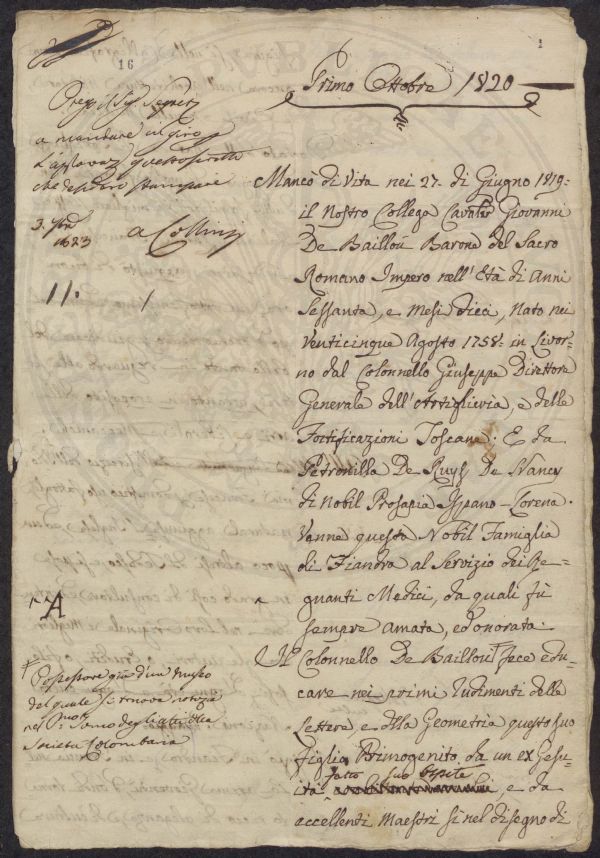 16
1
Primo Ottobre 1820
a mandare in giro
che
3.
1823
a Collini
11. 1
Mancò di Vita nei 27. di Giugno 1819.
il Nostro Collega Cavalier Giovanni
De Baillou Barone del Sacro
Romano Impero nell'Età di anni
Sessanta, e Mesi dieci, Nato nei
Venticinque Agosto 1758. in Livor-
no dal Colonnello Giuseppe Direttore
Generale dell'Artiglieria, e delle
Fortificazioni Toscane. E da
Petronilla De Ruys De Nancy
di Nobil Prosapia Ispano-Lorena.
Venne questa Nobil Famiglia
di Fiandra al Servizio dei Re-
gnanti Medici, da quali fù
sempre amata, ed onorata.
A
Il Colonnello De Baillou fece edu-
care nei primi Rudimenti delle
Lettere, e della Geometria questo suo
figlio Primogenito da un ex Gesu-
ita fatto suo Ospite, e da
eccellenti Maestri sì nel disegno di
Possessore già d'un museo
del quale si trova notizia
nel
Società Colombaria